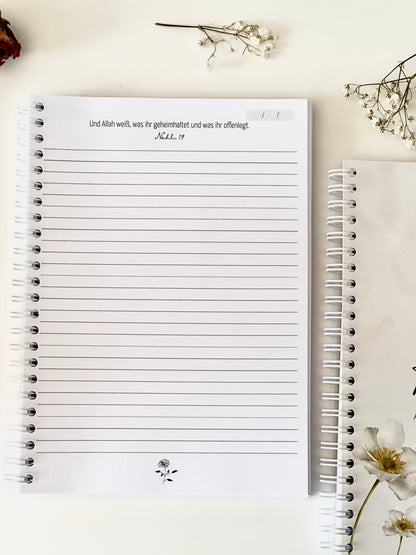 / /
Und Allah weiß, was ihr geheimhaltet und was ihr offenlegt.
Nahl, 19